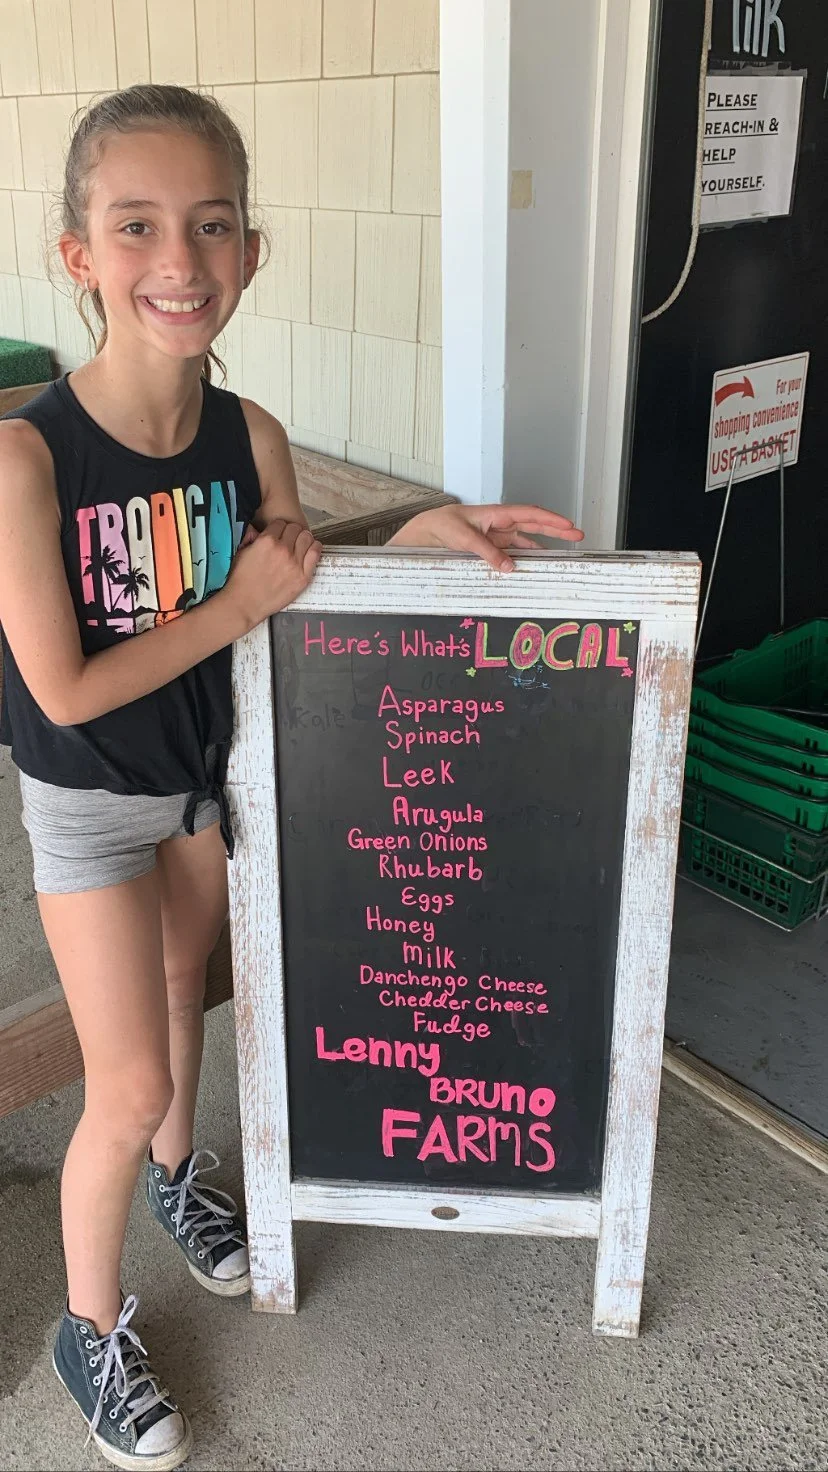 ilk
PLEASE
REACH-IN &
HELP
YOURSELF.
For your
shopping convenience
USE A BASKET
TROPICAL
Here's What's LOCAL
Kale
Asparagus
Spinach
Leek
Arugula
Green Onions
Rhubarb
Eggs
Honey
Milk
Danchengo Cheese
Chedder Cheese
Fudge
Lenny
BRUNO
FARMS